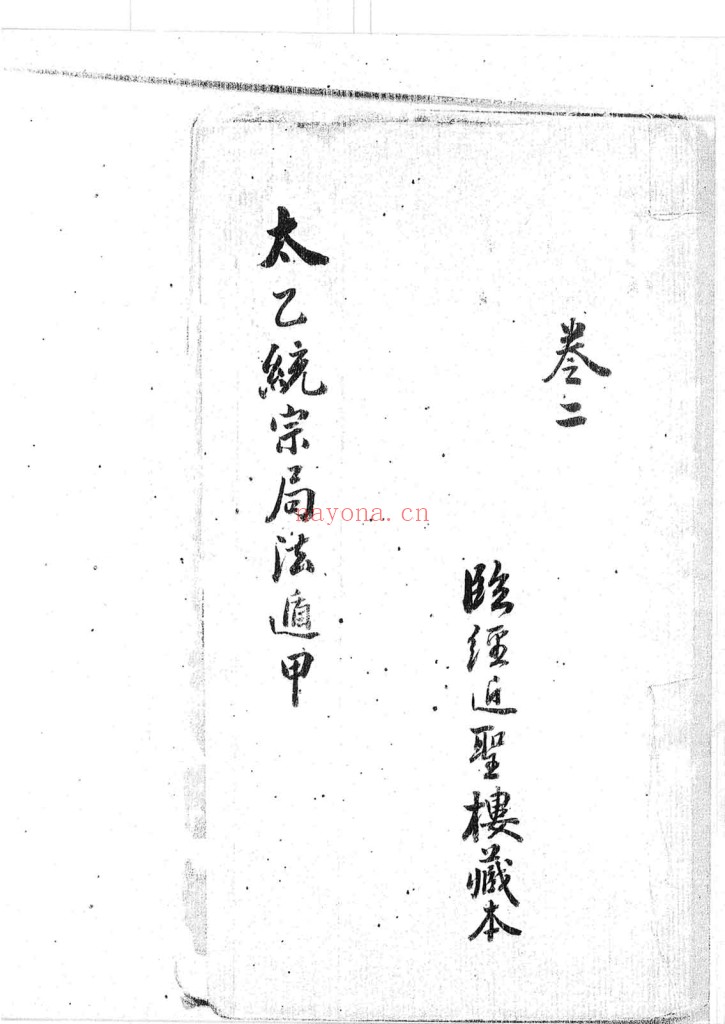 卷二
臨經近聖樓藏本
太乙統宗局法遁甲
nayona.cn